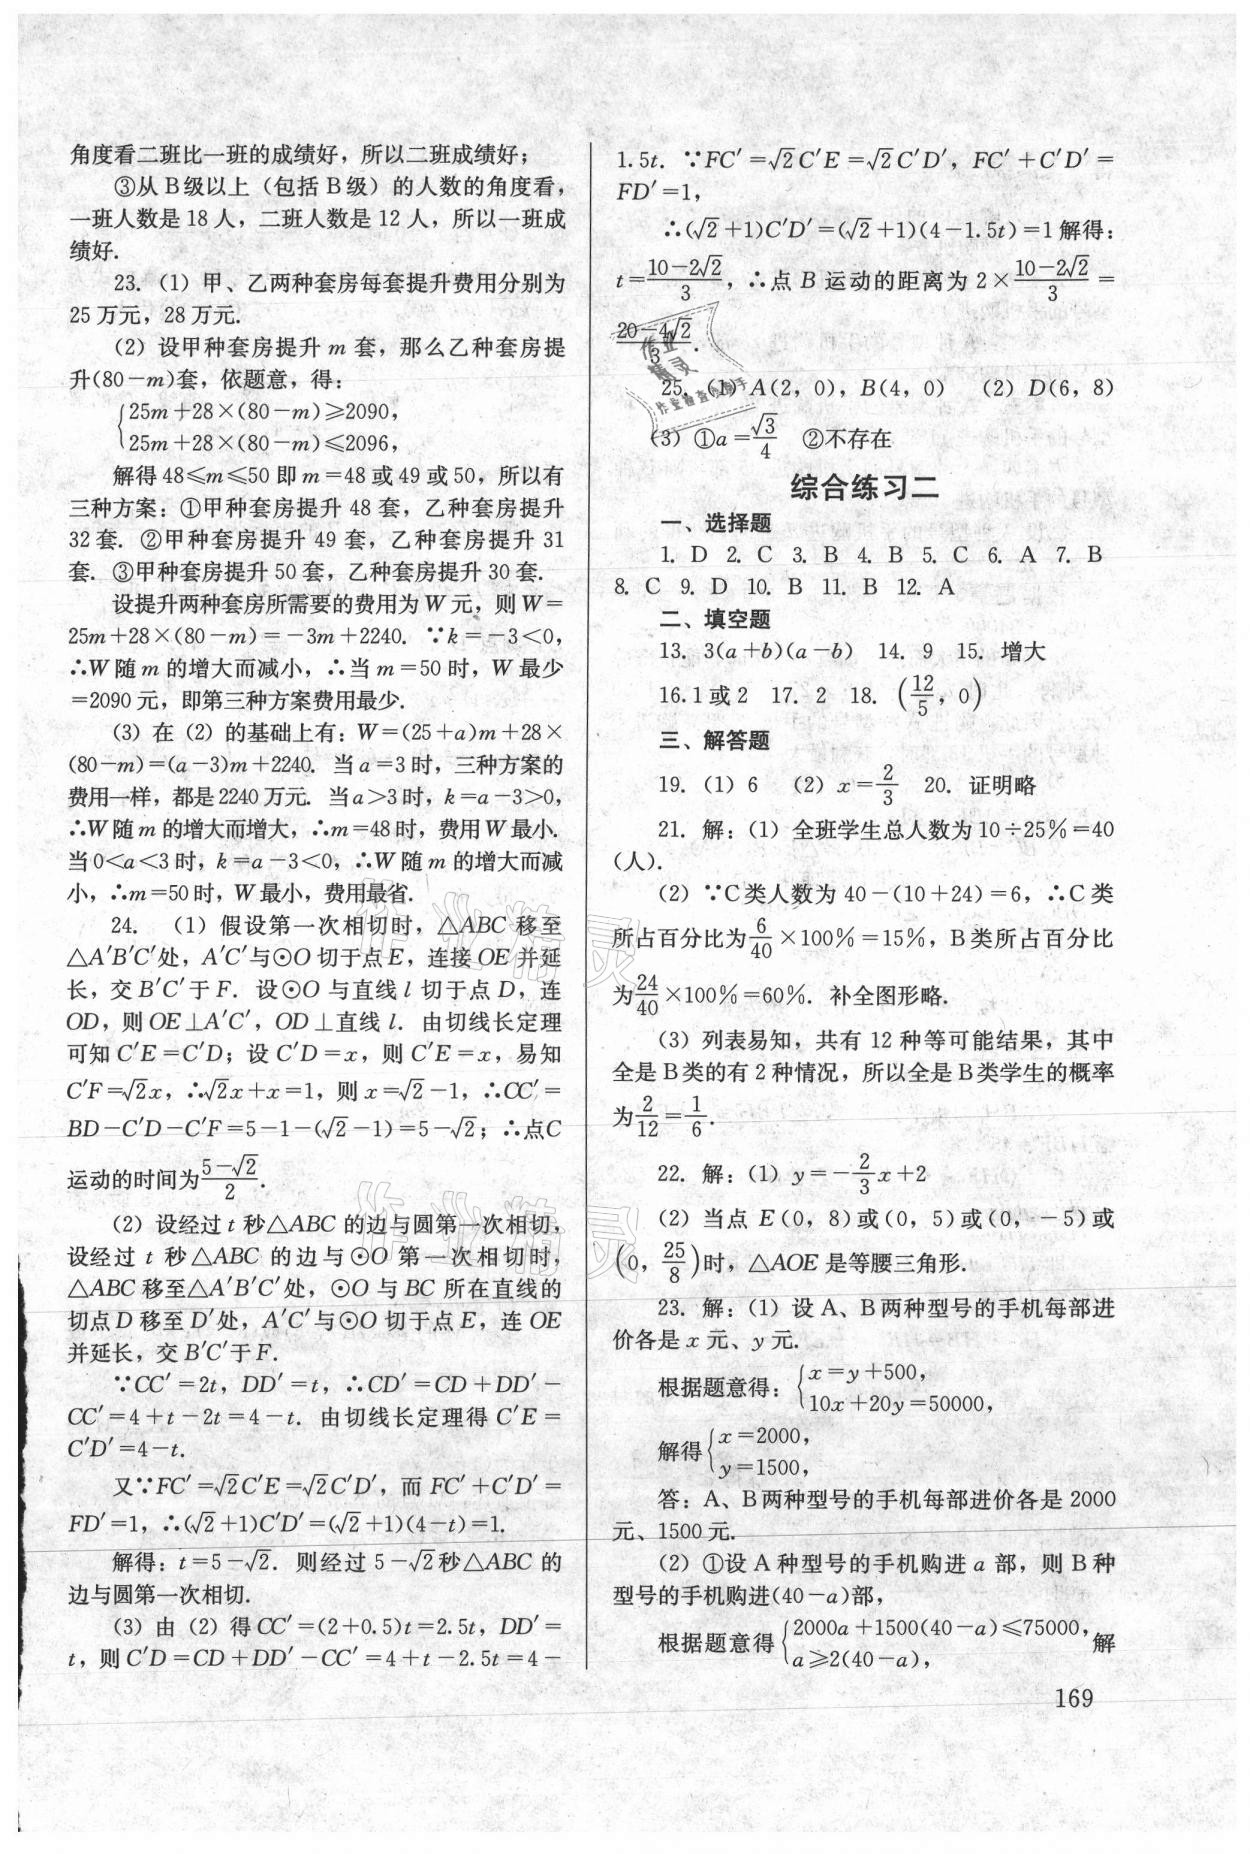 角度看二班比一班的成绩好，所以二班成绩好；
③从B级以上（包括B级）的人数的角度看，
一班人数是18人，二班人数是12人，所以一班成
绩好.
23.（1）甲、乙两种套房每套提升费用分别为
25万元，28万元.
（2）设甲种套房提升m套，那么乙种套房提
升(80－m)套，依题意，得：
{25m＋28×(80－m)≥2090，
25m＋28×(80－m)≤2096，
解得48≤m≤50即m＝48或49或50，所以有
三种方案：①甲种套房提升48套，乙种套房提升
32套. ②甲种套房提升49套，乙种套房提升31
套. ③甲种套房提升50套，乙种套房提升30套.
设提升两种套房所需要的费用为W元，则W＝
25m＋28×(80－m)＝－3m＋2240. ∵k＝－3<0，
∴W随m的增大而减小，∴当m＝50时，W最少
＝2090元，即第三种方案费用最少.
（3）在（2）的基础上有：W＝(25＋a)m＋28×
(80－m)＝(a－3)m＋2240. 当a＝3时，三种方案的
费用一样，都是2240万元. 当a>3时，k＝a－3>0，
∴W随m的增大而增大，∴m＝48时，费用W最小.
当0<a<3时，k＝a－3<0，∴W随m的增大而减
小，∴m＝50时，W最小，费用最省.
24.（1）假设第一次相切时，△ABC移至
△A′B′C′处，A′C′与⊙O切于点E，连接OE并延
长，交B′C′于F. 设⊙O与直线l切于点D，连
OD，则OE⊥A′C′，OD⊥直线l. 由切线长定理
可知C′E＝C′D；设C′D＝x，则C′E＝x，易知
C′F＝√2x，∴√2x＋x＝1，则x＝√2－1，∴CC′＝
BD－C′D－C′F＝5－1－(√2－1)＝5－√2；∴点C
运动的时间为(5－√2)/2.
（2）设经过t秒△ABC的边与圆第一次相切，
设经过t秒△ABC的边与⊙O第一次相切时，
△ABC移至△A′B′C′处，⊙O与BC所在直线的
切点D移至D′处，A′C′与⊙O切于点E，连OE
并延长，交B′C′于F.
∵CC′＝2t，DD′＝t，∴CD′＝CD＋DD′－
CC′＝4＋t－2t＝4－t. 由切线长定理得C′E＝
C′D′＝4－t.
又∵FC′＝√2C′E＝√2C′D′，而FC′＋C′D′＝
FD′＝1，∴(√2＋1)C′D′＝(√2＋1)(4－t)＝1.
解得：t＝5－√2. 则经过5－√2秒△ABC的
边与圆第一次相切.
（3）由（2）得CC′＝(2＋0.5)t＝2.5t，DD′＝
t，则C′D＝CD＋DD′－CC′＝4＋t－2.5t＝4－
1.5t. ∵FC′＝√2C′E＝√2C′D′，FC′＋C′D′＝
FD′＝1，
∴(√2＋1)C′D′＝(√2＋1)(4－1.5t)＝1解得：
t＝(10－2√2)/3，∴点B运动的距离为2×(10－2√2)/3＝
(20－4√2)/3.
25.（1）A(2，0)，B(4，0) （2）D(6，8)
（3）①a＝√3/4 ②不存在
综合练习二
一、选择题
1. D 2. C 3. B 4. B 5. C 6. A 7. B
8. C 9. D 10. B 11. B 12. A
二、填空题
13. 3(a＋b)(a－b) 14. 9 15. 增大
16.1或2 17. 2 18. (12/5，0)
三、解答题
19.（1）6 （2）x＝2/3 20. 证明略
21. 解：（1）全班学生总人数为10÷25%＝40
（人）.
（2）∵C类人数为40－(10＋24)＝6，∴C类
所占百分比为6/40×100%＝15%，B类所占百分比
为24/40×100%＝60%. 补全图形略.
（3）列表易知，共有12种等可能结果，其中
全是B类的有2种情况，所以全是B类学生的概率
为2/12＝1/6.
22. 解：（1）y＝－2/3x＋2
（2）当点E(0，8)或(0，5)或(0，－5)或
(0，25/8)时，△AOE是等腰三角形.
23. 解：（1）设A、B两种型号的手机每部进
价各是x元、y元.
根据题意得：{x＝y＋500，
10x＋20y＝50000，
解得{x＝2000，
y＝1500，
答：A、B两种型号的手机每部进价各是2000
元、1500元.
（2）①设A种型号的手机购进a部，则B种
型号的手机购进(40－a)部，
根据题意得{2000a＋1500(40－a)≤75000，解
a≥2(40－a)，
169
作业精灵
作业精灵
作业精灵